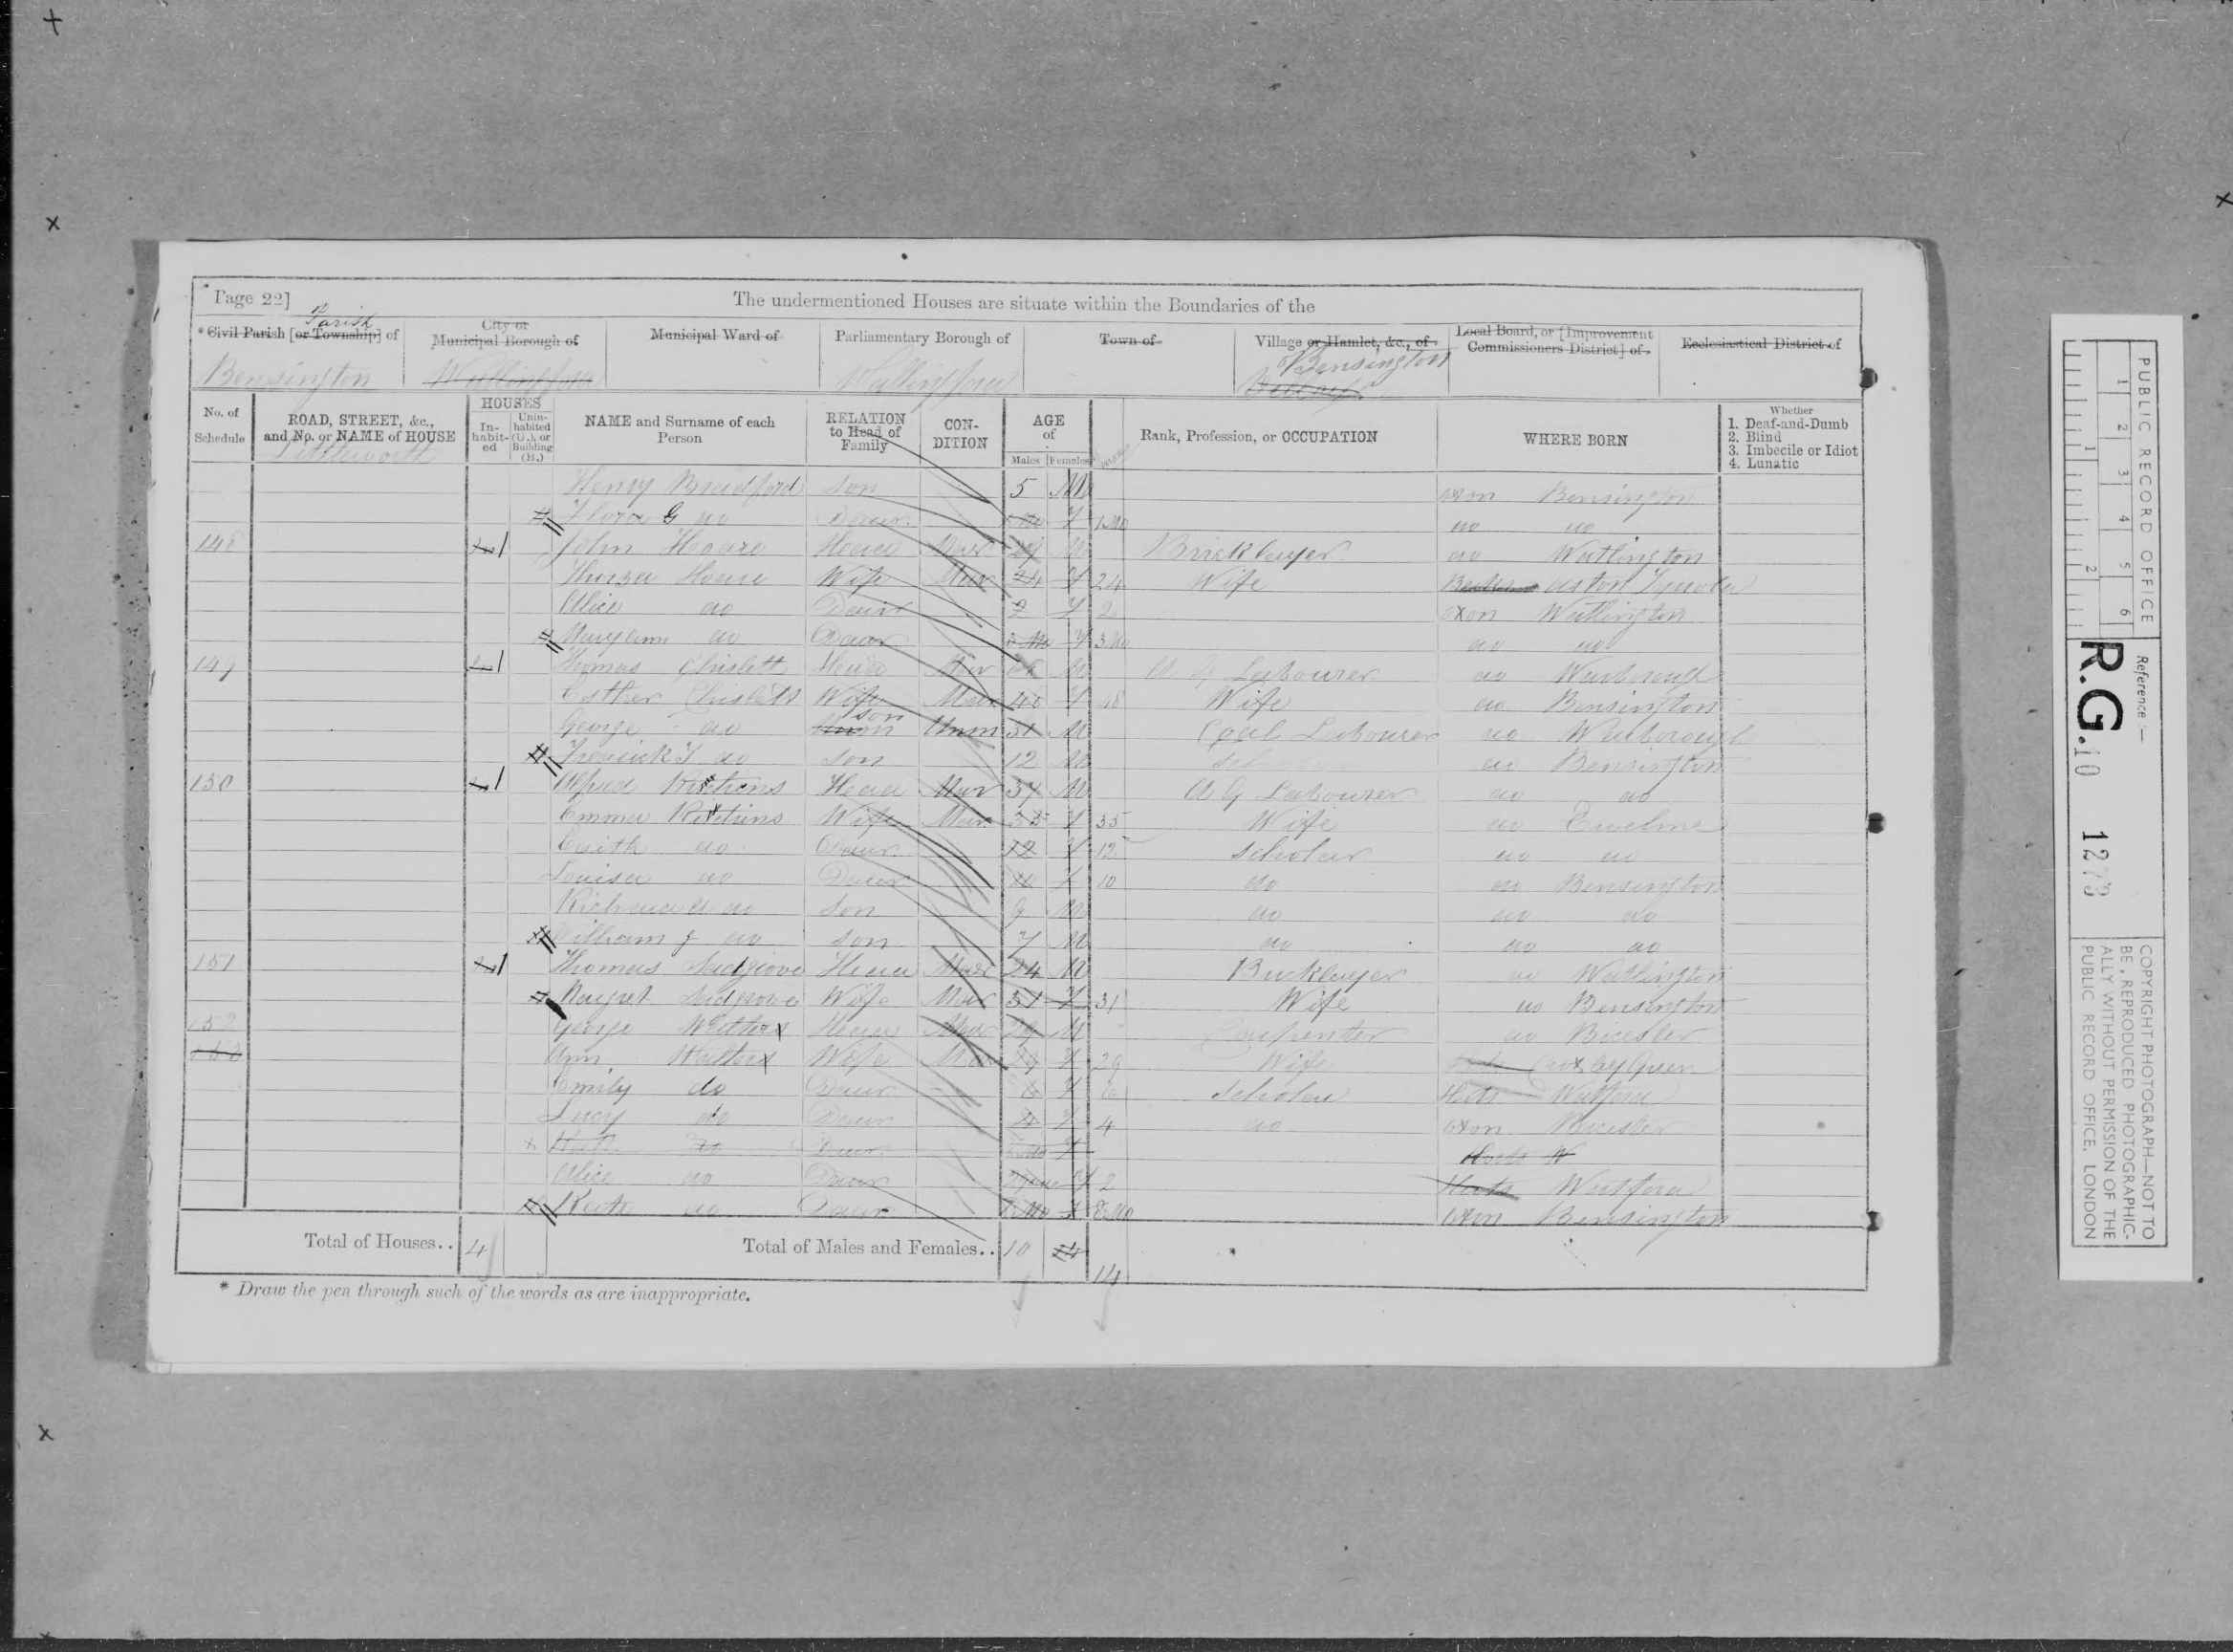 Page 22]
The undermentioned Houses are situate within the Boundaries of the
* Civil Parish [or Township] of
Parish
City or Municipal Borough of
Municipal Ward of
Parliamentary Borough of
Town of
Village or Hamlet, &c., of
Local Board, or [Improvement Commissioners District] of
Ecclesiastical District of
Bensington
Wallingford
Wallingford
Bensington
No. of Schedule
ROAD, STREET, &c., and No. or NAME of HOUSE
HOUSES
In-habit-ed
Unin-habited (U.), or Building (B.)
NAME and Surname of each Person
RELATION to Head of Family
CON-DITION
AGE of
Males
Females
Rank, Profession, or OCCUPATION
WHERE BORN
Whether
1. Deaf-and-Dumb
2. Blind
3. Imbecile or Idiot
4. Lunatic
Littleworth
Henry Bradford Son 5 M oxon Bensington
Flora G do Daur F 1 Mo do do
148 1 John Hoare Head Mar M Bricklayer do Watlington
Hoare Wife Mar 24 F 24 Wife aston
Alice do Daur 2 F 2 oxon Watlington
Maryann do Daur 3 Mo F 3 Mo do do
149 1 Thomas Chislett Head Mar M A G Labourer do Warborough
Esther Chislett Wife Mar 48 F 48 Wife do Bensington
George do son Unm M Labourer do Warborough
Frederick T do son 12 M do Bensington
150 1 Alfred Head Mar 37 M A G Labourer do do
Emma Wife Mar 35 F 35 Wife do Ewelme
Edith do Daur 12 F 12 Scholar do do
Louisa do Daur 10 F 10 do do Bensington
Richard A do son 9 M do do do
William J do son 7 M do do do
151 1 Thomas Sadgrove Head Mar 24 M Bricklayer do Watlington
Sadgrove Wife Mar 31 F 31 Wife do Bensington
152 George Walters Head Mar 29 M Carpenter do Bicester
Ann Walters Wife Mar 29 F 29 Wife Croxley Green
Emily do Daur 6 F 6 Scholar Herts Watford
Lucy do Daur 4 F 4 do oxon Bicester
do Daur F
Herts W
Alice do Daur F 2 Herts Watford
Kate do Daur 8 Mo F 8 Mo oxon Bensington
Total of Houses.. 4
Total of Males and Females.. 10 14
14
* Draw the pen through such of the words as are inappropriate.
PUBLIC RECORD OFFICE
1 2 3 4 5 6
1 2
Reference :—
R.G. 10 1273
COPYRIGHT PHOTOGRAPH—NOT TO
BE REPRODUCED PHOTOGRAPHIC-
ALLY WITHOUT PERMISSION OF THE
PUBLIC RECORD OFFICE, LONDON